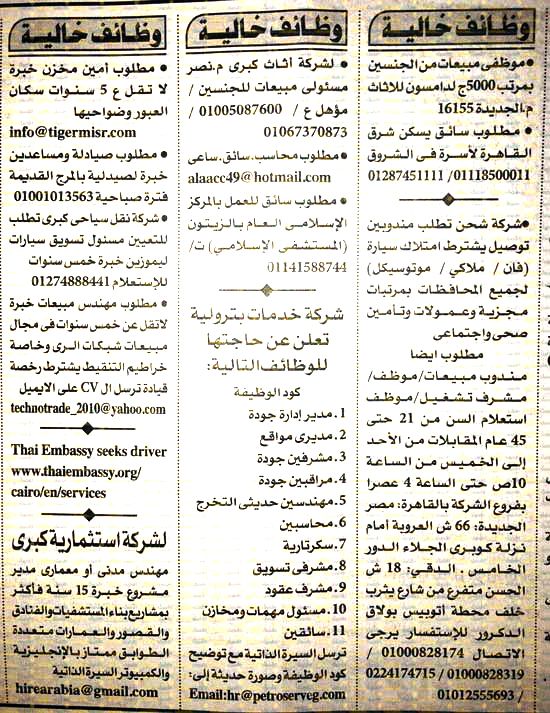 وظائف خالية
•موظفى مبيعات من الجنسين
بمرتب 5000ج لدامسون للأثاث
م.الجديدة 16155
• مطلوب سائق يسكن شرق
القاهرة لأسرة فى الشروق
01287451111 /01118500011
•شركة شحن تطلب مندوبين
توصيل يشترط امتلاك سيارة
(فان / ملاكي / موتوسيكل)
لجميع المحافظات بمرتبات
مجزية وعمولات وتأمين
صحى واجتماعى
مطلوب ايضا
مندوب مبيعات/موظف/
مشرف تشغيل/موظف
استعلام السن من 21 حتى
45 عام المقابلات من الأحد
إلى الخميس من الساعة
10ص حتى الساعة 4 عصرا
بفروع الشركة بالقاهرة: مصر
الجديدة: 66 ش العروبة أمام
نزلة كوبرى الجلاء الدور
الخامس : الدقي: 18 ش
الحسن متفرع من شارع يثرب
خلف محطة أتوبيس بولاق
الدكرور للإستفسار يرجى
الاتصال 01000828174 /
01000828319 /0224174715
/ 01012555693
وظائف خالية
• لشركة أثاث كبرى م.نصر
مسئولى مبيعات للجنسين /
مؤهل ع / 01005087600 /
01067370873
•مطلوب محاسب.سائق.ساعى
alaacc49@hotmail.com
• مطلوب سائق للعمل بالمركز
الإسلامى العام بالزيتون
(المستشفى الإسلامي) ت/
01141588744
شركة خدمات بترولية
تعلن عن حاجتها
للوظائف التالية:
كود الوظيفة
1. مدير إدارة جودة
2. مديرى مواقع
3. مشرفين جودة
4. مراقبين جودة
5. مهندسين حديثى التخرج
6. محاسبين
7. سكرتارية
8. مشرفى تسويق
9. مشرف عقود
10. مسئول مهمات ومخازن
11. سائقين
ترسل السيرة الذاتية مع توضيح
كود الوظيفة وصورة حديثة إلى:
Email:hr@petroserveg.com
وظائف خالية
• مطلوب أمين مخزن خبرة
لا تقل ع 5 سنوات سكان
العبور وضواحيها
info@tigermisr.com
• مطلوب صيادلة ومساعدين
خبرة لصيدلية بالمرج القديمة
فترة صباحية 01001013563
•شركة نقل سياحى كبرى تطلب
للتعيين مسئول تسويق سيارات
ليموزين خبرة خمس سنوات
للإستعلام 01274888441
• مطلوب مهندس مبيعات خبرة
لاتقل عن خمس سنوات فى مجال
مبيعات شبكات الرى وخاصة
خراطيم التنقيط يشترط رخصة
قيادة ترسل ال CV على الايميل
technotrade_2010@yahoo.com
Thai Embassy seeks driver
www.thaiembassy.org/
cairo/en/services
لشركة استثمارية كبرى
مهندس مدنى أو معمارى مدير
مشروع خبرة 15 سنة فأكثر
بمشاريع بناء المستشفيات والفنادق
والقصور والعمارات متعددة
الطوابق ممتاز بالإنجليزية
والكمبيوتر السيرة الذاتية
hirearabia@gmail.com